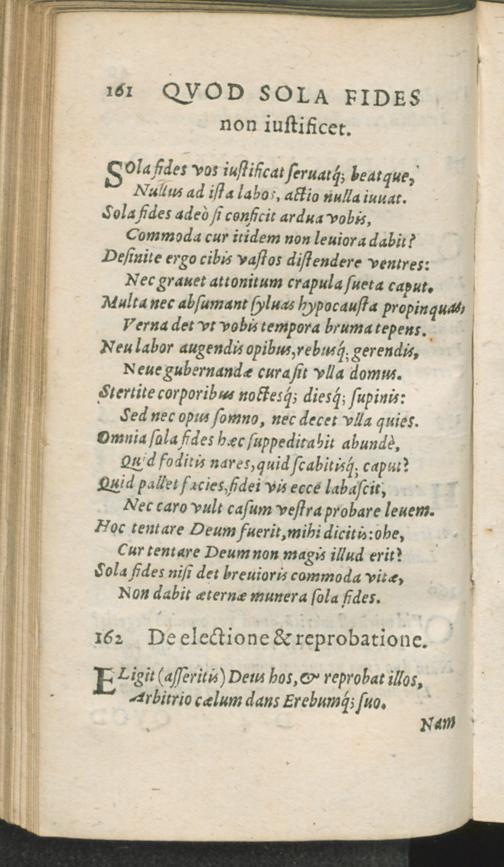 161 QVOD SOLA FIDES
non iustificet.
SOla fides vos iustificat seruatq́; beatque,
Nullus ad ista labor, actio nulla iuuat.
Sola fides adeò si conficit ardua vobis,
Commoda cur itidem non leuiora dabit?
Desinite ergo cibis vastos distendere ventres:
Nec grauet attonitum crapula sueta caput.
Multa nec absumant syluas hypocausta propinquas,
Verna det vt vobis tempora bruma tepens.
Neu labor augendis opibus, rebusq́; gerendis,
Neue gubernandæ cura sit vlla domus.
Stertite corporibus noctesq́; diesq́; supinis:
Sed nec opus somno, nec decet vlla quies.
Omnia sola fides hæc suppeditabit abundè,
Quid foditis nares, quid scabitisq́; caput?
Quid pallet facies, fidei vis ecce labascit,
Nec caro vult casum vestra probare leuem.
Hoc tentare Deum fuerit, mihi dicitis: ohe,
Cur tentare Deum non magis illud erit?
Sola fides nisi det breuioris commoda vitæ,
Non dabit æternæ munera sola fides.
162 De electione & reprobatione.
ELigit (asseritis) Deus hos, & reprobat illos,
Arbitrio cælum dans Erebumq́; suo.
Nam